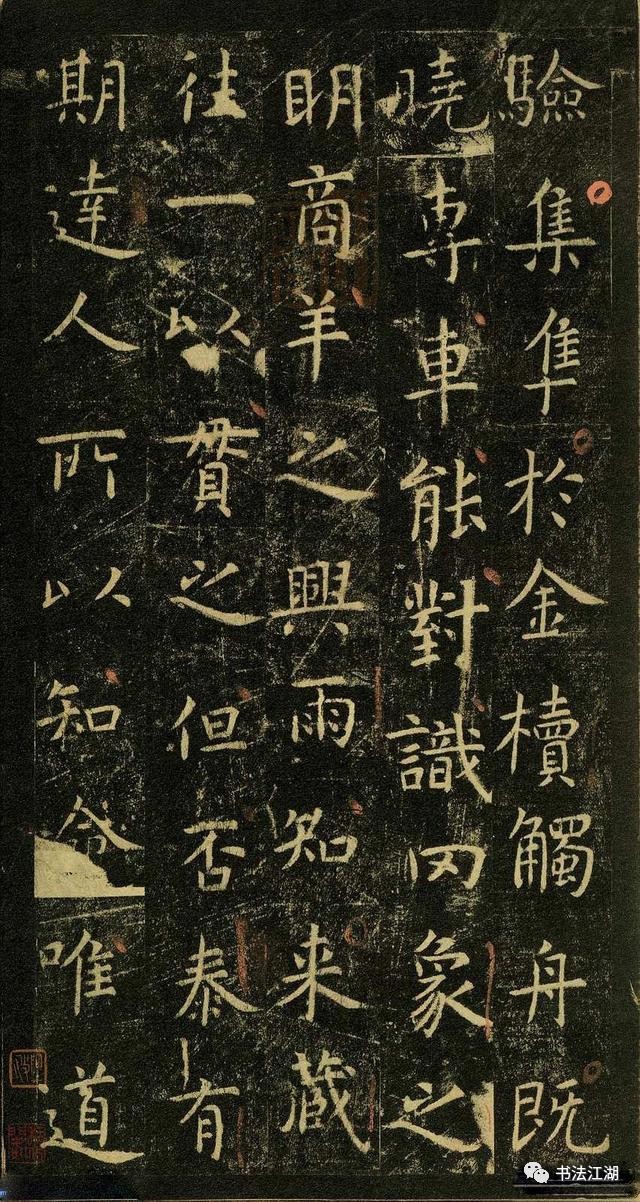 驗集隼於金櫝觸舟既
曉專車能對識罔象之
明商羊之興雨知来藏
往一以貫之但否泰有
期達人所以知命唯道
书法江湖